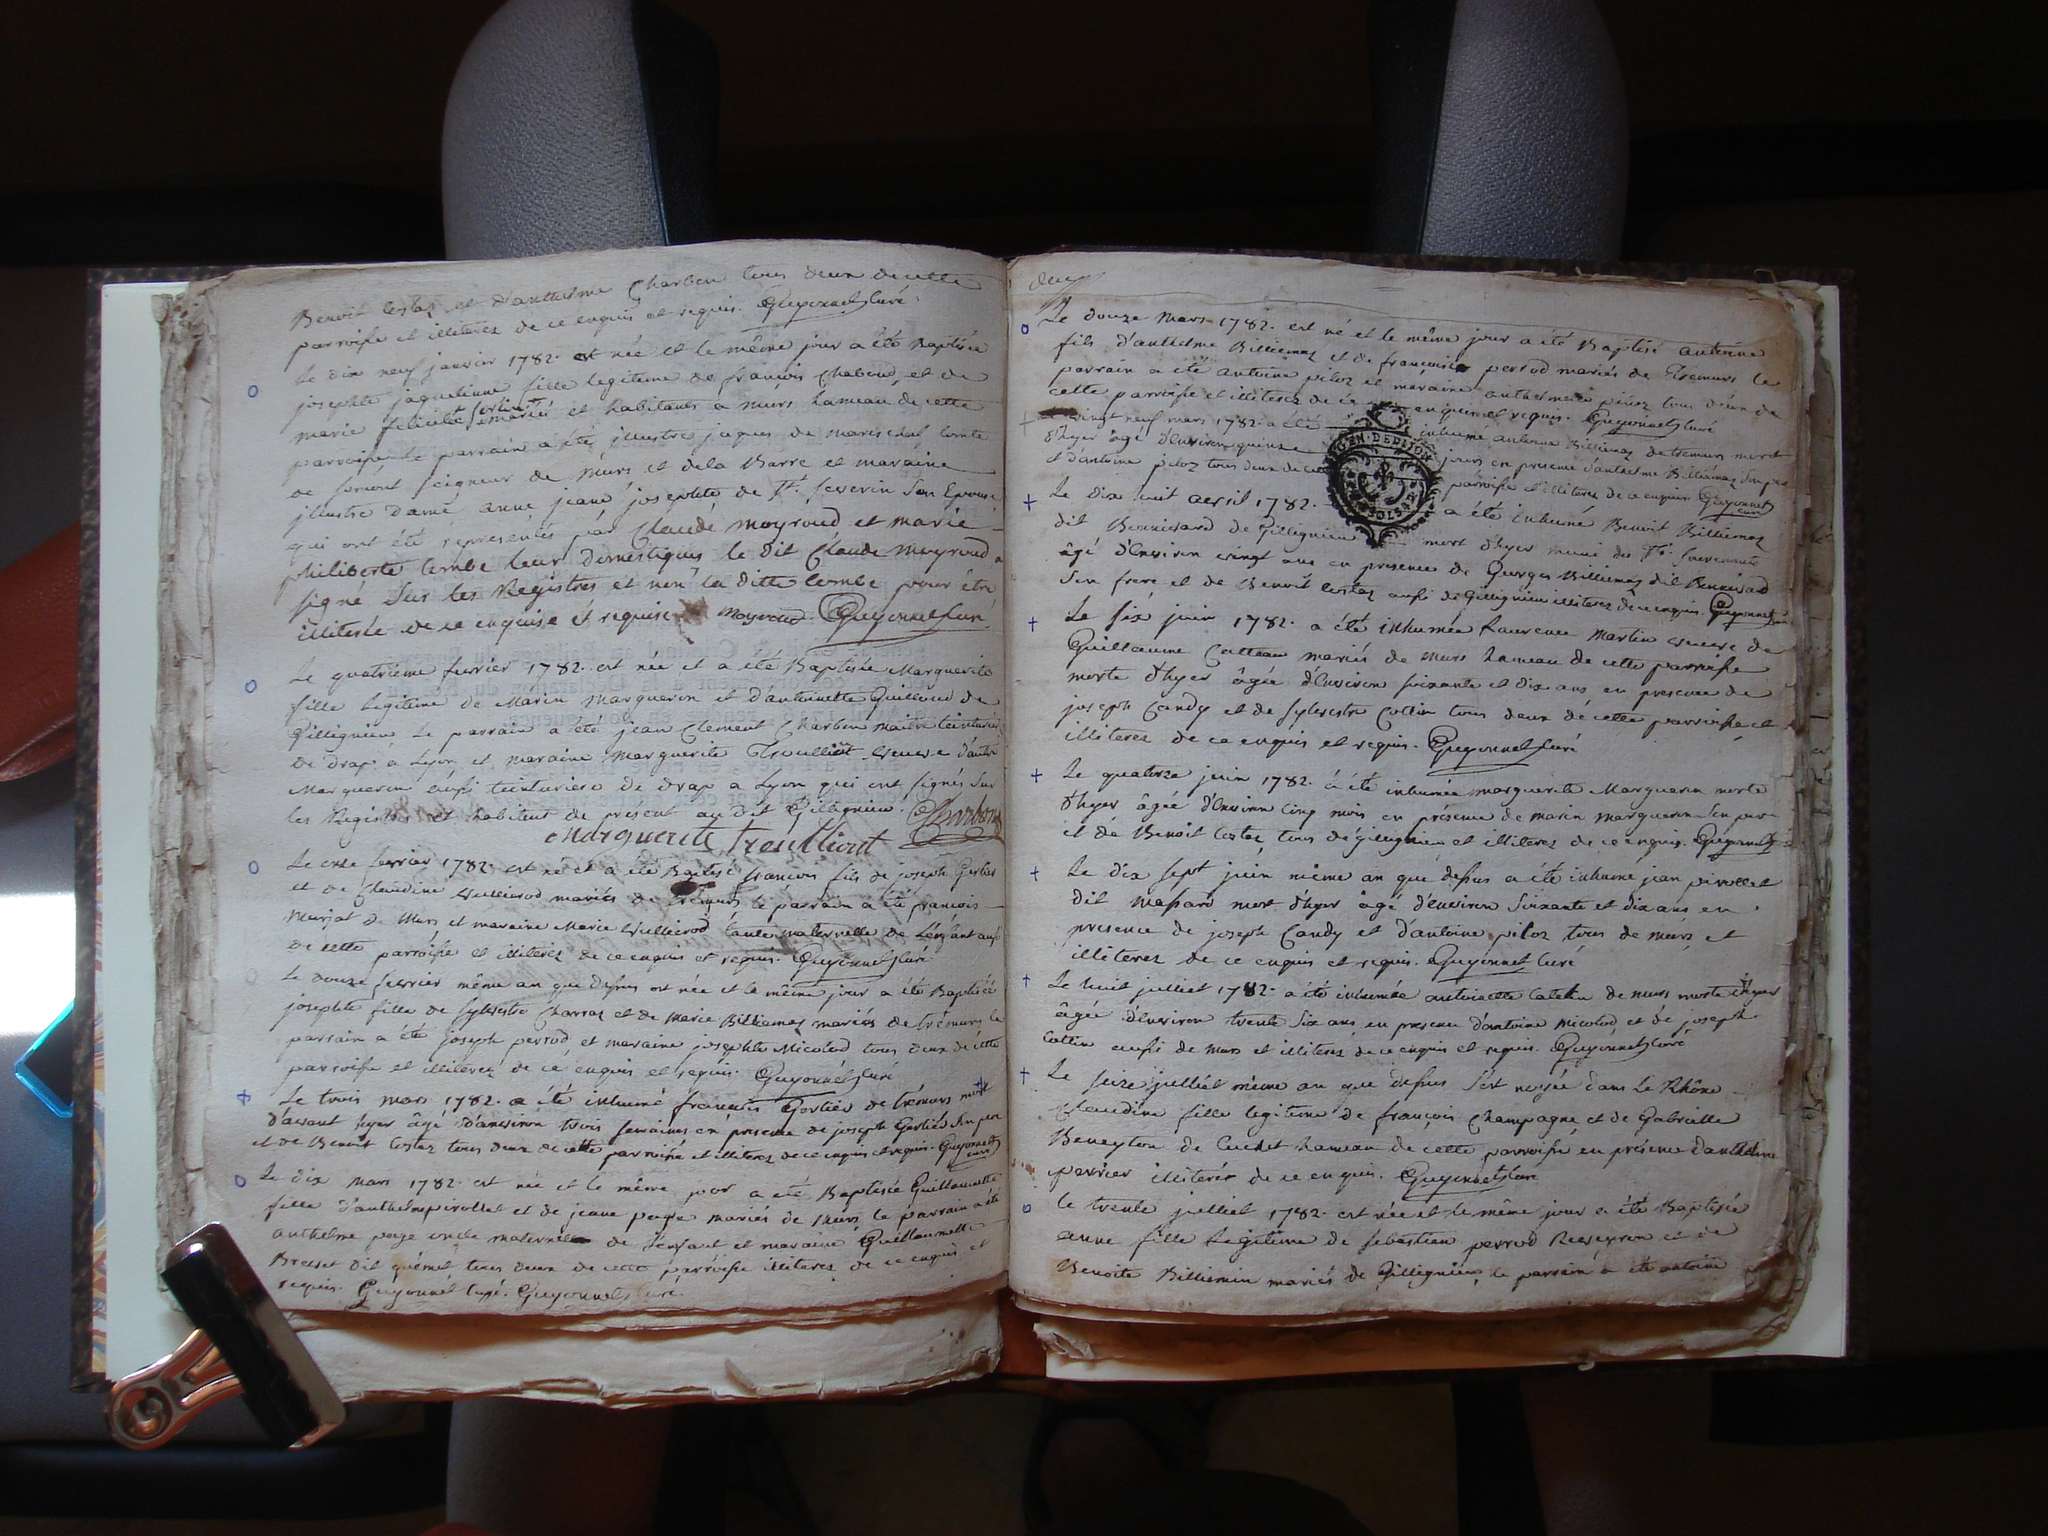 Benoit Costaz et d'anthelme Charbon tous deux de cette
parroisse et illiterez de ce enquis et requis. Guyonnet Curé.
Le dix neuf janvier 1782. est née et le même jour a été Baptisée
josephte jaqueline fille legitime de françois Chaboud et de
marie felicité mariés et habitants a murs hameau de cette
parroisse le parrain a été illustre jaques de mareschal Comte
de somont seigneur de Murs et de la Barre et maraine
illustre dame anne jeane josephte de St. severin son Epouse
qui ont été représentés par Claude Moyroud et marie
philiberte Combe leur domestiques le dit Claude Moyroud a
signé sur les Registres et non la ditte Combe pour être
illiterée de ce enquise et requise Moyroud. Guyonnet Curé
Le quatrième fevrier 1782. est née et a été Baptisée Marguerite
fille legitime de Marin Margueron et d'antoinette Guilloud de
Gillignieu le parrain a été jean Clement Charbon maitre teinturier
de drap à Lyon et maraine Marguerite Troulliout veuve d'autre
Marguerin aussi teinturiere de drap a Lyon qui ont signés sur
les Registres et habitent de présent au dit Gillignieu. Charbon
Marguerite Troulliout
Le onze fevrier 1782. est né et a été Baptisé françois fils de joseph Gortier
et de Claudine Vullierod mariés de Trémurs le parrain a été françois
Murjat de Murs et maraine Marie Vullierod tante maternelle de l'enfant aussi
de cette parroisse et illiterez de ce enquis et requis. Guyonnet Curé
Le douze fevrier même an que dessus est née et le même jour a été Baptisée
josephte fille de sylvestre Charraz et de Marie Billiemaz mariés de trémurs le
parrain a été joseph perrod et maraine josephte Micoloud tous deux de cette
parroisse et illiterez de ce enquis et requis. Guyonnet Curé
Le trois mars 1782. a été inhumé françois Gortier de trémurs mort
d'avant hyer âgé d'environ trois semaines en presence de joseph Gortier son pere
et de Benoit Costaz tous deux de cette parroisse et illiterez de ce enquis et requis. Guyonnet
curé
Le dix mars 1782. est née et le même jour a été Baptisée Guillaumette
fille d'anthelme pirollet et de jeane page mariés de Murs le parrain a été
anthelme page oncle maternel de l'enfant et maraine Guillaumette
Bresset dit quémet tous deux de cette parroisse illiterez de ce enquis et
requis. Guyonnet Curé. Guyonnet Curé.
deux
Le douze Mars 1782. est né et le même jour a été Baptisé antoine
fils d'anthelme Billiemaz et de françoise perrod mariés de Tremurs le
parrain a été antoine piloz et maraine anthelmette piloz tous deux de
cette parroisse et illiterez de ce enquis et requis. Guyonnet Curé
vingt neuf mars 1782. a été inhumé antoine Billiemaz de tremurs mort
d'hyer âgé d'environ quinze jours en presence d'anthelme Billiemaz son pere
et d'antoine piloz tous deux de cette parroisse et illiterez de ce enquis Guyonnet
curé
GEN DE DIJON
Le dix huit avril 1782. a été inhumé Benoit Billiemaz
dit Bonnivard de Gillignieu mort d'hyer muni des Sts. sacrements
âgé d'environ vingt ans en presence de Georges Billiemaz dit Bonnivard
son frere et de Benoit Costaz aussi de Gillignieu illiterez de ce enquis. Guyonnet
Le six juin 1782. a été inhumée Laurence Martin veuve de
Guillaume Cottean mariés de Murs hameau de cette parroisse
morte d'hyer âgée d'environ soixante et dix ans en presence de
joseph Candy et de sylvestre Cottin tous deux de cette parroisse et
illiterez de ce enquis et requis. Guyonnet Curé
Le quatorze juin 1782. a été inhumée marguerite Marguerin morte
d'hyer âgée d'environ cinq mois en présence de marin marguerin son pere
et de Benoit Costaz tous de gillignieu et illiterez de ce enquis. Guyonnet
Le dix sept juin même an que dessus a été inhumé jean pirollet
dit massard mort d'hyer âgé d'environ soixante et dix ans en
presence de joseph Candy et d'antoine piloz tous de murs et
illiterez de ce enquis et requis. Guyonnet Curé
Le huit julliet 1782. a été inhumée antoinette Catelin de murs morte d'hyer
âgée d'environ trente six ans en presence d'antoine Micoloud et de joseph
Cottin aussi de Murs et illiterez de ce enquis et requis. Guyonnet Curé
Le seize julliet même an que dessus s'est noyée dans le Rhône
Claudine fille legitime de françois Champagne et de Gabrielle
Beneyton de Cuchet hameau de cette parroisse en présence d'anthelme
perrier illiteré de ce enquis. Guyonnet Curé
le trente julliet 1782. est née et le même jour a été Baptisée
anne fille Legitime de sebastien perrod Reveyron et de
Benoite Billiemin mariés de Gillignieu le parrain a été antoine